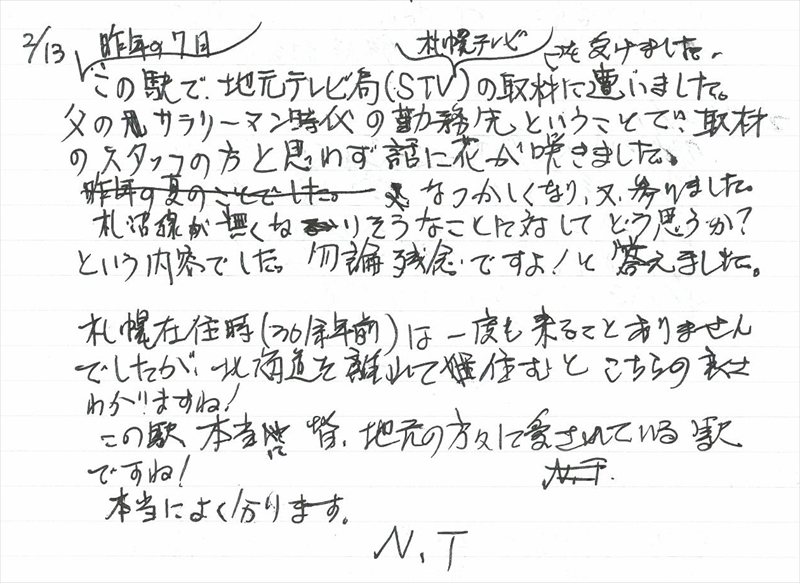 2/13 昨年の7月 札幌テレビ を受けました。
この駅で、地元テレビ局(STV)の取材に遭いました。
父の元サラリーマン時代の勤務先ということで、取材
のスタッフの方と思わず話に花が咲きました。
昨年の夏のことでした。 なつかしくなり、又、参りました。
札沼線が無くなりそうなことに対してどう思うか?
という内容でした。勿論残念ですよ!と答えました。
札幌在住時(30余年前)は一度も来ることありません
でしたが、北海道を離れて住むとこちらの良さ
わかりますね!
この駅、本当に皆、地元の方々に愛されている駅
ですね! N.T.
本当によく分ります。
N.T